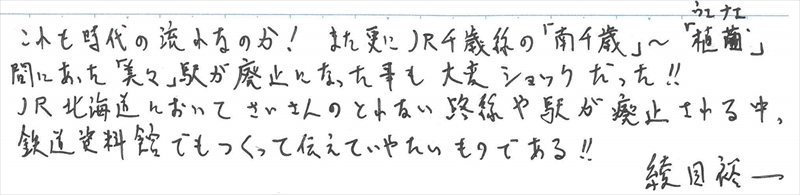 これも時代の流れなのか! また更にJR千歳線の「南千歳」〜「植苗」
ウエナエ
間にあった「美々」駅が廃止になった事も大変ショックだった!!
JR北海道においてさいさんのとれない路線や駅が廃止される中、
鉄道資料館でもつくって伝えていやたいものである!!
綾目裕一